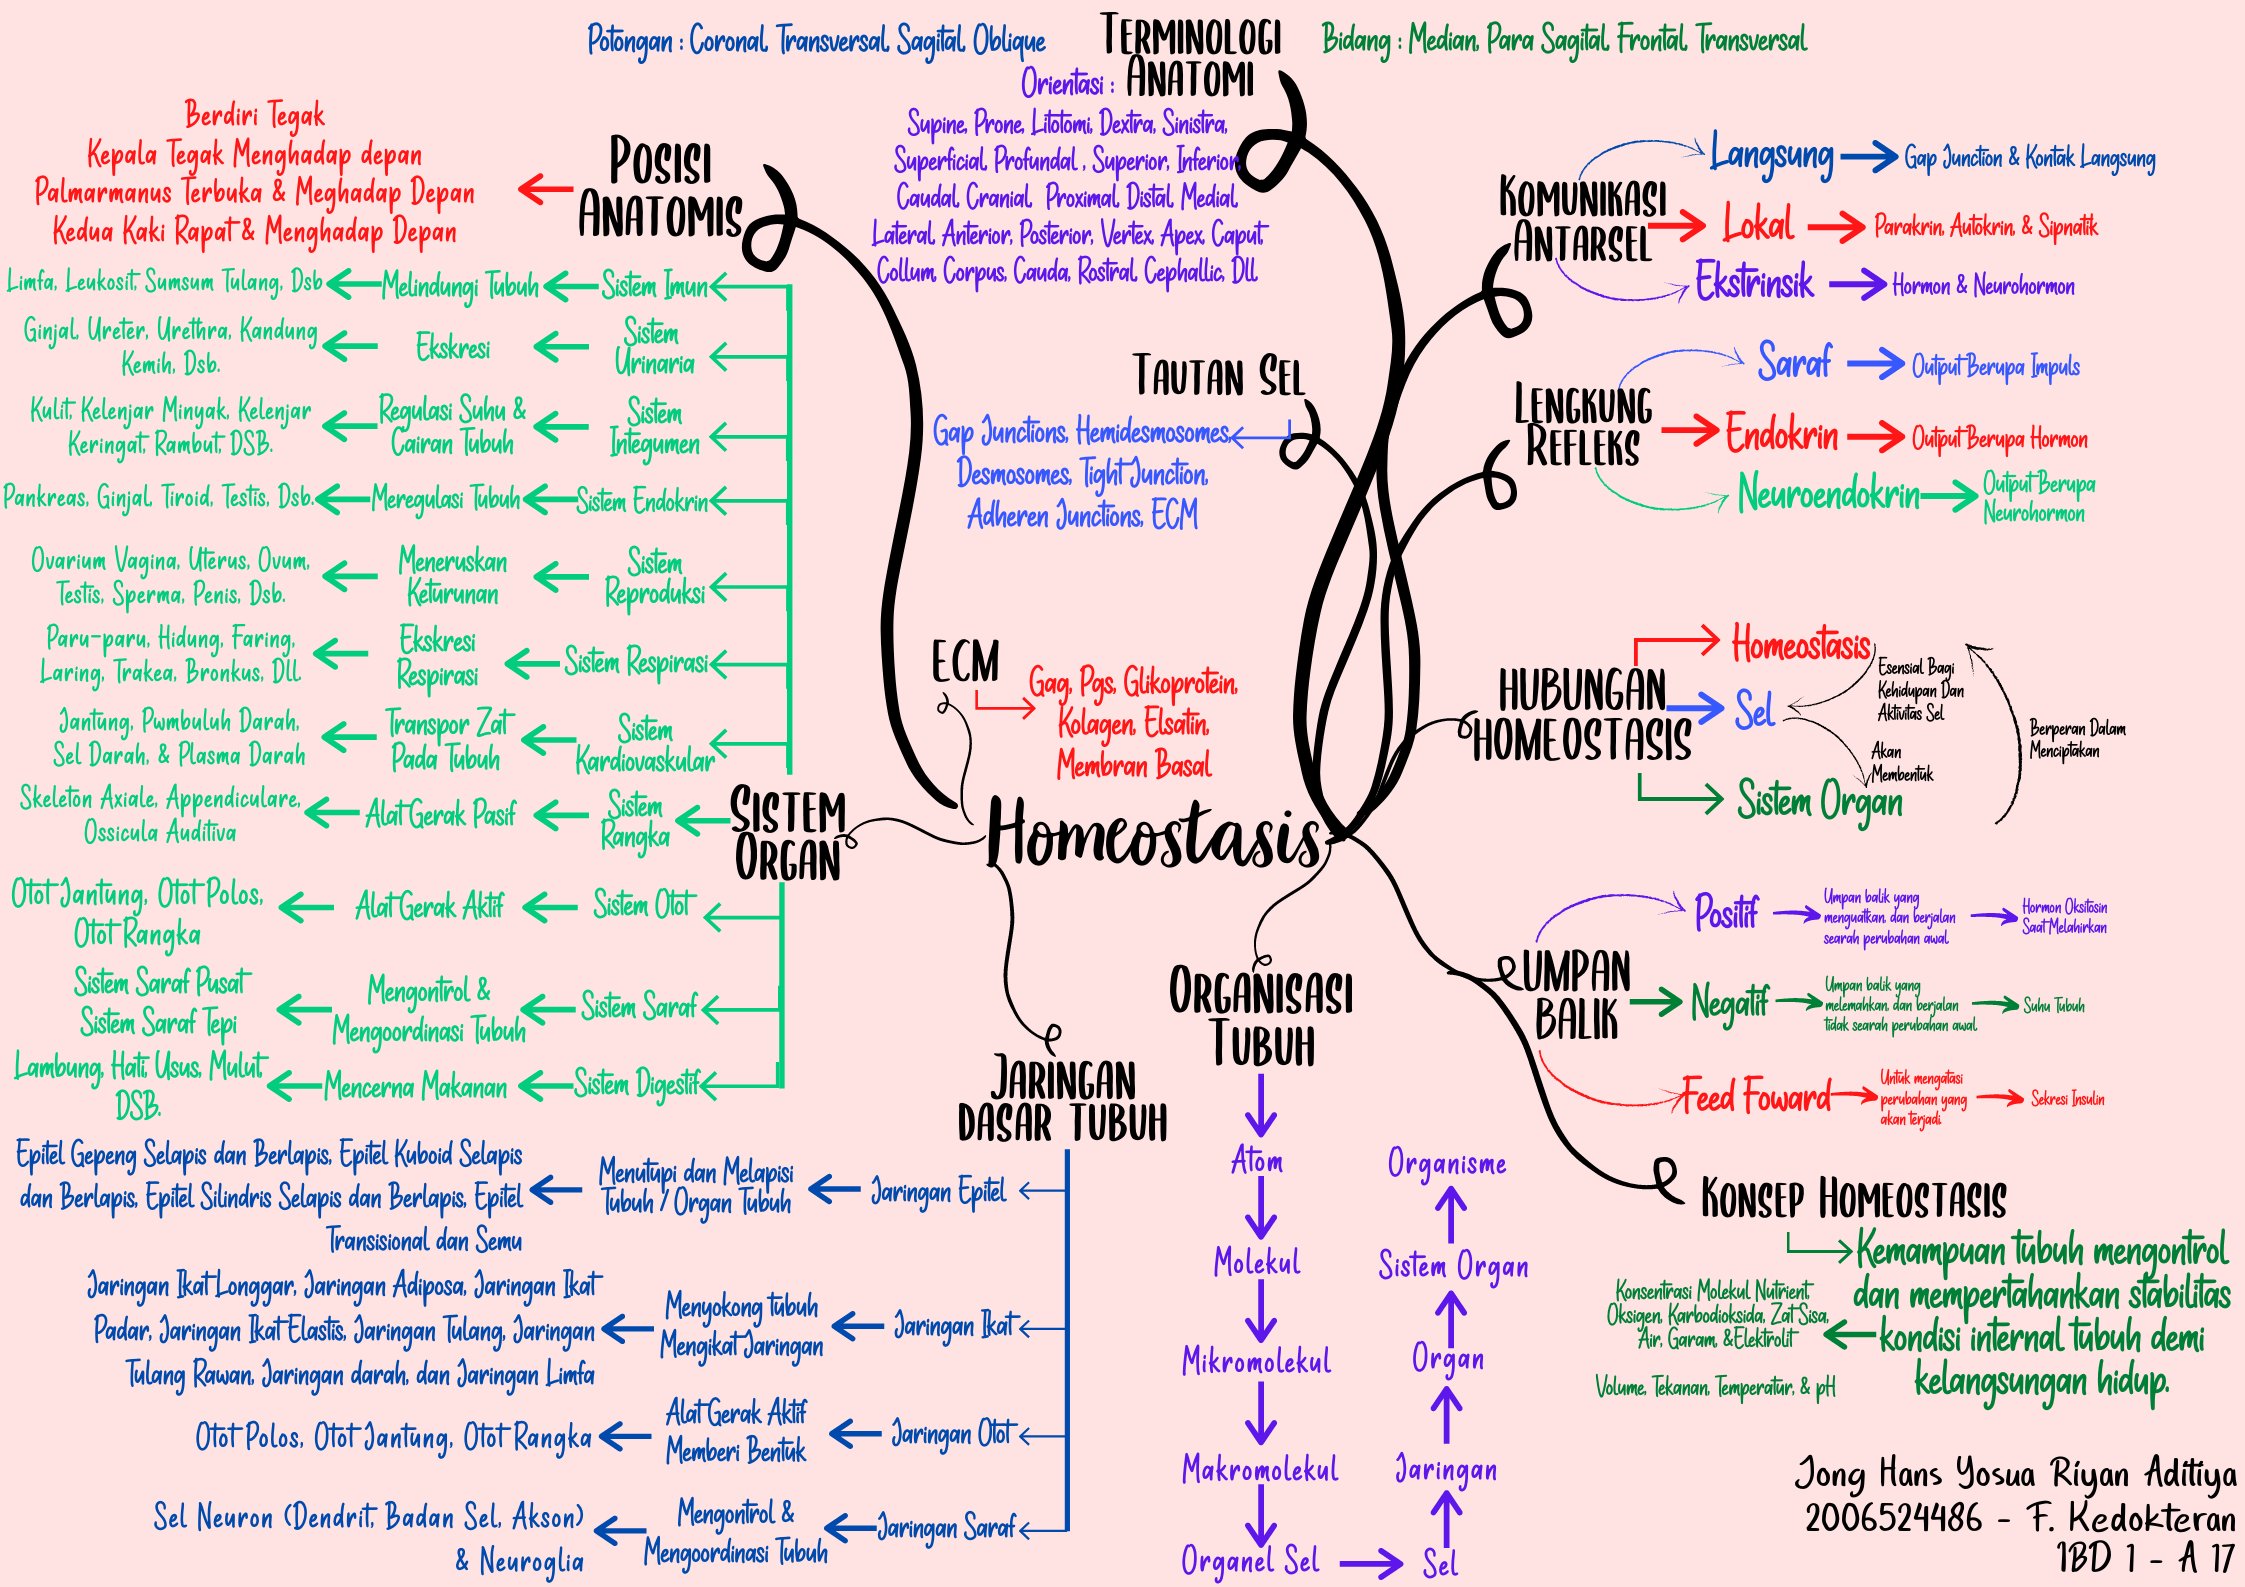 Potongan : Coronal, Transversal, Sagital, Oblique
TERMINOLOGI
ANATOMI
Bidang : Median, Para Sagital, Frontal, Transversal
Orientasi :
Supine, Prone, Litotomi, Dextra, Sinistra,
Superficial, Profundal , Superior, Inferior,
Caudal, Cranial, Proximal, Distal, Medial,
Lateral, Anterior, Posterior, Vertex, Apex, Caput,
Collum, Corpus, Cauda, Rostral, Cephallic, Dll.
POSISI
ANATOMIS
Berdiri Tegak
Kepala Tegak Menghadap depan
Palmarmanus Terbuka & Meghadap Depan
Kedua Kaki Rapat & Menghadap Depan
Sistem Imun
Melindungi Tubuh
Limfa, Leukosit, Sumsum Tulang, Dsb
Sistem
Urinaria
Ekskresi
Ginjal, Ureter, Urethra, Kandung
Kemih, Dsb.
Sistem
Integumen
Regulasi Suhu &
Cairan Tubuh
Kulit, Kelenjar Minyak, Kelenjar
Keringat, Rambut, DSB.
Sistem Endokrin
Meregulasi Tubuh
Pankreas, Ginjal, Tiroid, Testis, Dsb.
Sistem
Reproduksi
Meneruskan
Keturunan
Ovarium Vagina, Uterus, Ovum,
Testis, Sperma, Penis, Dsb.
Sistem Respirasi
Ekskresi
Respirasi
Paru-paru, Hidung, Faring,
Laring, Trakea, Bronkus, Dll.
Sistem
Kardiovaskular
Transpor Zat
Pada Tubuh
Jantung, Pwmbuluh Darah,
Sel Darah, & Plasma Darah
SISTEM
ORGAN
Sistem
Rangka
Alat Gerak Pasif
Skeleton Axiale, Appendiculare,
Ossicula Auditiva
Sistem Otot
Alat Gerak Aktif
Otot Jantung, Otot Polos,
Otot Rangka
Sistem Saraf
Mengontrol &
Mengoordinasi Tubuh
Sistem Saraf Pusat
Sistem Saraf Tepi
Sistem Digestif
Mencerna Makanan
Lambung, Hati, Usus, Mulut,
DSB.
TAUTAN SEL
Gap Junctions, Hemidesmosomes,
Desmosomes, Tight Junction,
Adheren Junctions, ECM
ECM
Gag, Pgs, Glikoprotein,
Kolagen, Elsatin,
Membran Basal
Homeostasis
KOMUNIKASI
ANTARSEL
Langsung
Gap Junction & Kontak Langsung
Lokal
Parakrin, Autokrin, & Sipnatik
Ekstrinsik
Hormon & Neurohormon
LENGKUNG
REFLEKS
Saraf
Output Berupa Impuls
Endokrin
Output Berupa Hormon
Neuroendokrin
Output Berupa
Neurohormon
HUBUNGAN
HOMEOSTASIS
Homeostasis
Sel
Sistem Organ
Esensial Bagi
Kehidupan Dan
Aktivitas Sel
Akan
Membentuk
Berperan Dalam
Menciptakan
UMPAN
BALIK
Positif
Umpan balik yang
menguatkan, dan berjalan
searah perubahan awal
Hormon Oksitosin
Saat Melahirkan
Negatif
Umpan balik yang
melemahkan, dan berjalan
tidak searah perubahan awal
Suhu Tubuh
Feed Foward
Untuk mengatasi
perubahan yang
akan terjadi
Sekresi Insulin
KONSEP HOMEOSTASIS
Kemampuan tubuh mengontrol
dan mempertahankan stabilitas
kondisi internal tubuh demi
kelangsungan hidup.
Konsentrasi Molekul Nutrient,
Oksigen, Karbodioksida, Zat Sisa,
Air, Garam, &Elektrolit
Volume, Tekanan, Temperatur, & pH
ORGANISASI
TUBUH
Atom
Molekul
Mikromolekul
Makromolekul
Organel Sel
Sel
Jaringan
Organ
Sistem Organ
Organisme
JARINGAN
DASAR TUBUH
Jaringan Epitel
Menutupi dan Melapisi
Tubuh / Organ Tubuh
Epitel Gepeng Selapis dan Berlapis, Epitel Kuboid Selapis
dan Berlapis, Epitel Silindris Selapis dan Berlapis, Epitel
Transisional dan Semu
Jaringan Ikat
Menyokong tubuh
Mengikat Jaringan
Jaringan Ikat Longgar, Jaringan Adiposa, Jaringan Ikat
Padar, Jaringan Ikat Elastis, Jaringan Tulang, Jaringan
Tulang Rawan, Jaringan darah, dan Jaringan Limfa
Jaringan Otot
Alat Gerak Aktif
Memberi Bentuk
Otot Polos, Otot Jantung, Otot Rangka
Jaringan Saraf
Mengontrol &
Mengoordinasi Tubuh
Sel Neuron (Dendrit, Badan Sel, Akson)
& Neuroglia
Jong Hans Yosua Riyan Aditiya
2006524486 - F. Kedokteran
IBD 1 - A 17